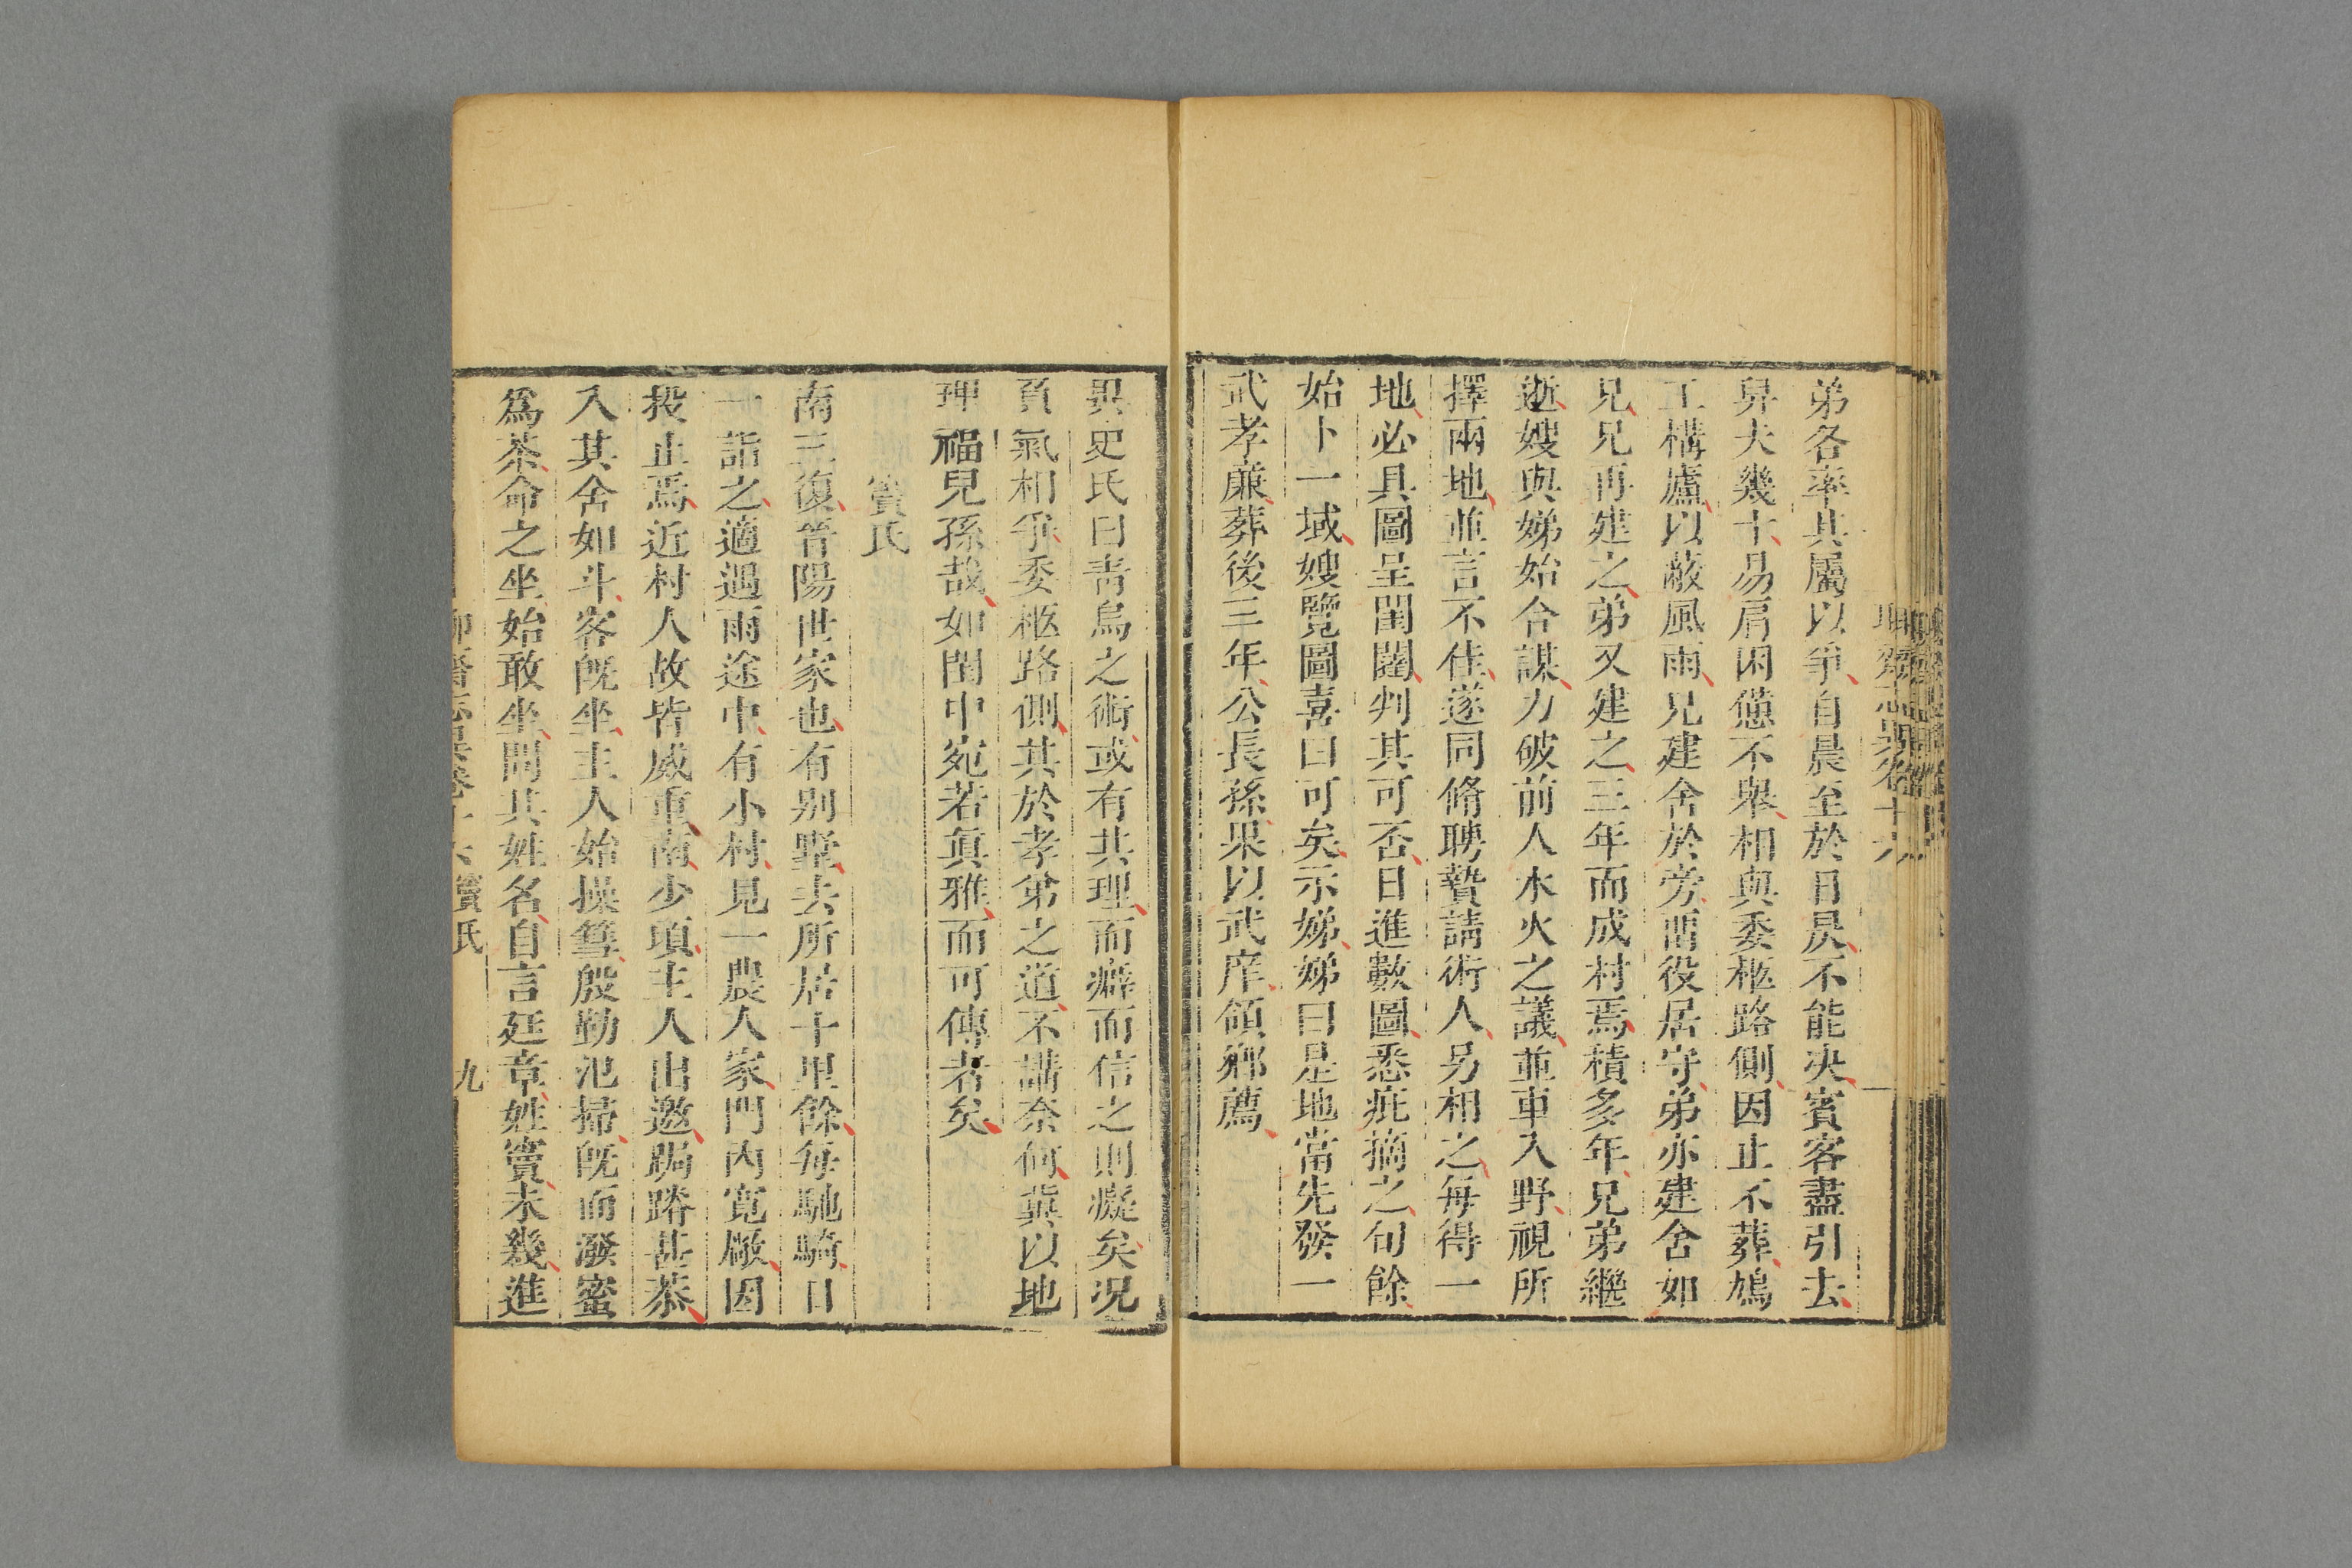 弟各率其屬以爭自晨至於日昃不能决賓客盡引去
舁夫幾十易肩困憊不舉相與委柩路側因止不葬鳩
工構廬以蔽風雨兄建舍於旁畱役居守弟亦建舍如
兄兄再建之弟又建之三年而成村焉積多年兄弟繼
逝嫂與娣始合謀力破前人水火之議並車入野視所
擇兩地並言不佳遂同脩聘贄請術人另相之每得一
地必具圖呈閨闥判其可否日進數圖悉疵摘之旬餘
始卜一域嫂覽圖喜曰可矣示娣娣曰是地當先發一
武孝廉葬後三年公長孫果以武庠領鄉薦
異史氏曰靑烏之術或有其理而癖而信之則癡矣况
負氣相爭委柩路側其於孝弟之道不講奈何冀以地
理福兒孫哉如閨中宛若眞雅而可傳者矣
竇氏
南三復晉陽世家也有別墅去所居十里餘每馳騎日
一詣之適遇雨途中有小村見一農人家門內寬敞因
投止焉近村人故皆威重南少頃主人出邀跼蹐甚恭
入其舍如斗客旣坐主人始操篲殷勤氾掃旣而潑蜜
爲茶命之坐始敢坐問其姓名自言廷章姓竇未幾進
竇氏
九